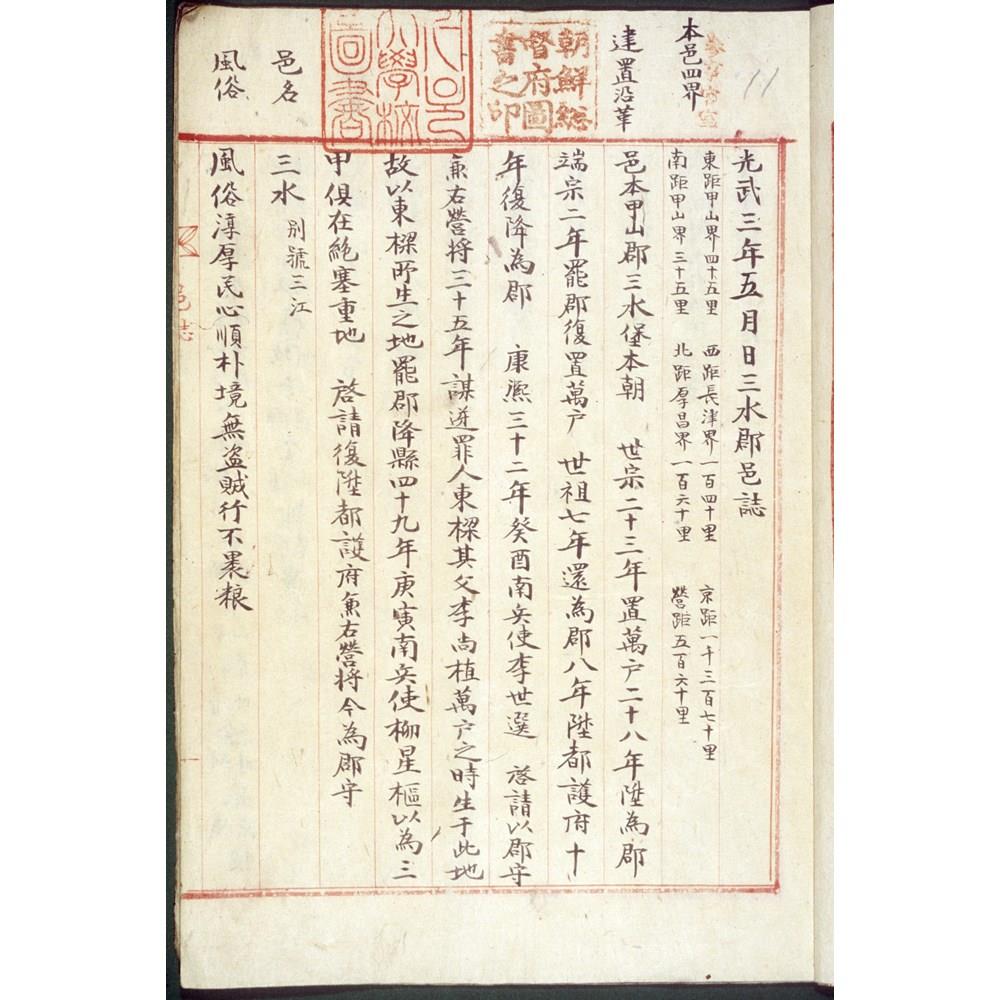 11
本邑四界
建置沿革
朝鮮総
督府圖
書之印
大學校
圖書
邑名
風俗
光武三年五月日三水郡邑誌
東距甲山界四十五里 西距長津界一百四十里 京距一千三百七十里
南距甲山界三十五里 北距厚昌界一百六十里 營距五百六十里
邑本甲山郡三水堡本朝 世宗二十三年置萬戶二十八年陞為郡
端宗二年罷郡復置萬戶 世祖七年還為郡八年陞都護府十
年復降為郡 康熙三十二年癸酉南兵使李世選 啓請以郡守
兼右營將三十五年謀逆罪人東樑其父李尚植萬戶之時生于此地
故以東樑所生之地罷郡降縣四十九年庚寅南兵使柳星樞以為三
甲俱在絶塞重地 啓請復陞都護府兼右營將今為郡守
三水 別號三江
風俗淳厚民心順朴境無盜賊行不裹粮
邑誌